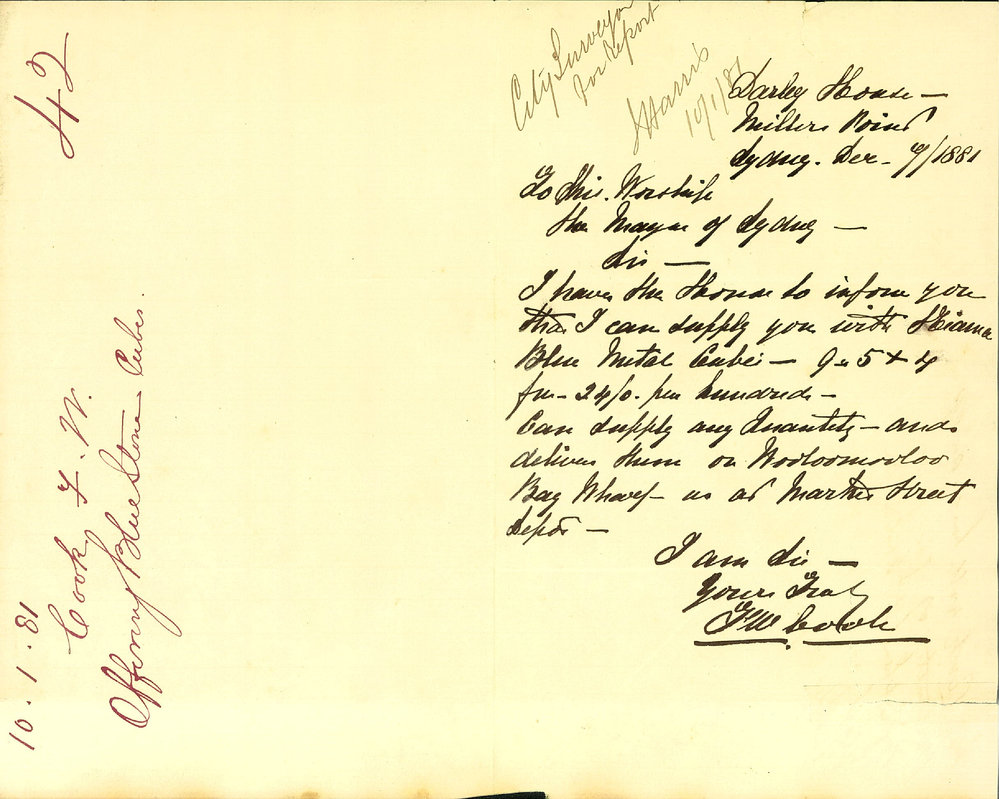 42
10.1.81
Cook F. W.
Offering Blue Stone Cubes.
City Surveyor
for Report
J Harris
10/1/81
Darley House —
Millers Point
Sydney. Dec - 7/1881
To His. Worship
the Mayor of Sydney —
Sir —
I have the Honor to inform you
that I can supply you with Kiama
Blue Metal Cubes — 9 x 5 x 4
for - 24/0. per hundred -
Can supply any Quantity — and
deliver them on Wooloomooloo
Bay Wharf — or at Market Street
Depot —
I am Sir —
Yours Truly
FW. Cook